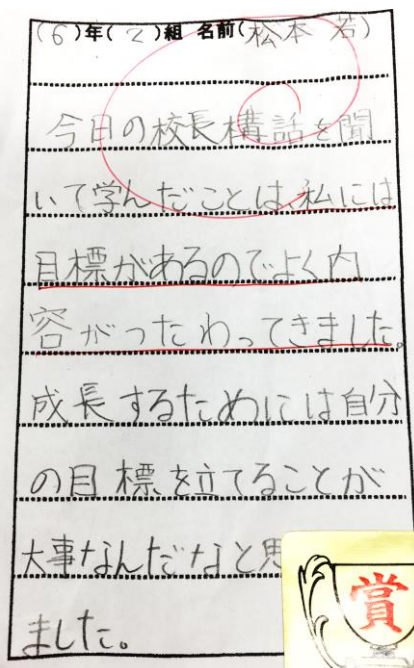 (6)年(2)組 名前(松本 若)
今日の校長構話を聞
いて学んだことは、私には
目標があるのでよく内
容がつたわってきました。
成長するためには自分
の目標を立てることが
大事なんだなと思
ました。
賞